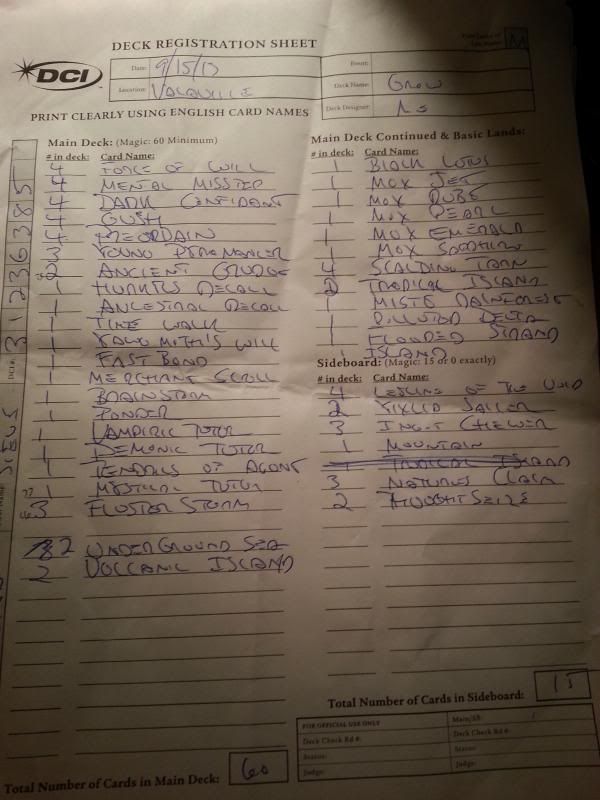 DECK REGISTRATION SHEET
DCI
Date: 9/15/13
Location: VACAVILLE
Event:
Deck Name: GROW
Deck Designer:
PRINT CLEARLY USING ENGLISH CARD NAMES
Main Deck: (Magic: 60 Minimum)
# in deck: Card Name:
4 FORCE OF WILL
4 MENTAL MISSTEP
4 DARK CONFIDANT
4 GUSH
4 PREORDAIN
3 YOUNG PYROMANCER
2 ANCIENT GRUDGE
1 HURKYLS RECALL
1 ANCESTRAL RECALL
1 TIME WALK
1 YAWGMOTH'S WILL
1 FAST BOND
1 MERCHANT SCROLL
1 BRAINSTORM
1 PONDER
1 VAMPIRIC TUTOR
1 DEMONIC TUTOR
1 TENDRILS OF AGONY
1 MYSTICAL TUTOR
3 FLUSTER STORM
2 UNDERGROUND SEA
2 VOLCANIC ISLAND
Total Number of Cards in Main Deck: 60
Main Deck Continued & Basic Lands:
# in deck: Card Name:
1 BLACK LOTUS
1 MOX JET
1 MOX RUBY
1 MOX PEARL
1 MOX EMERALD
1 MOX SAPPHIRE
4 SCALDING TARN
2 TROPICAL ISLAND
1 MISTY RAINFOREST
1 POLLUTED DELTA
1 FLOODED STRAND
1 ISLAND
Sideboard: (Magic: 15 or 0 exactly)
# in deck: Card Name:
4 LEYLINE OF THE VOID
2 YIXLID JAILER
3 INGOT CHEWER
1 MOUNTAIN
1 TROPICAL ISLAND
3 NATURES CLAIM
2 THOUGHTSEIZE
Total Number of Cards in Sideboard: 15
FOR OFFICIAL USE ONLY
Main/SB:
Deck Check Rd #:
Deck Check Rd #:
Status:
Status:
Judge:
Judge: